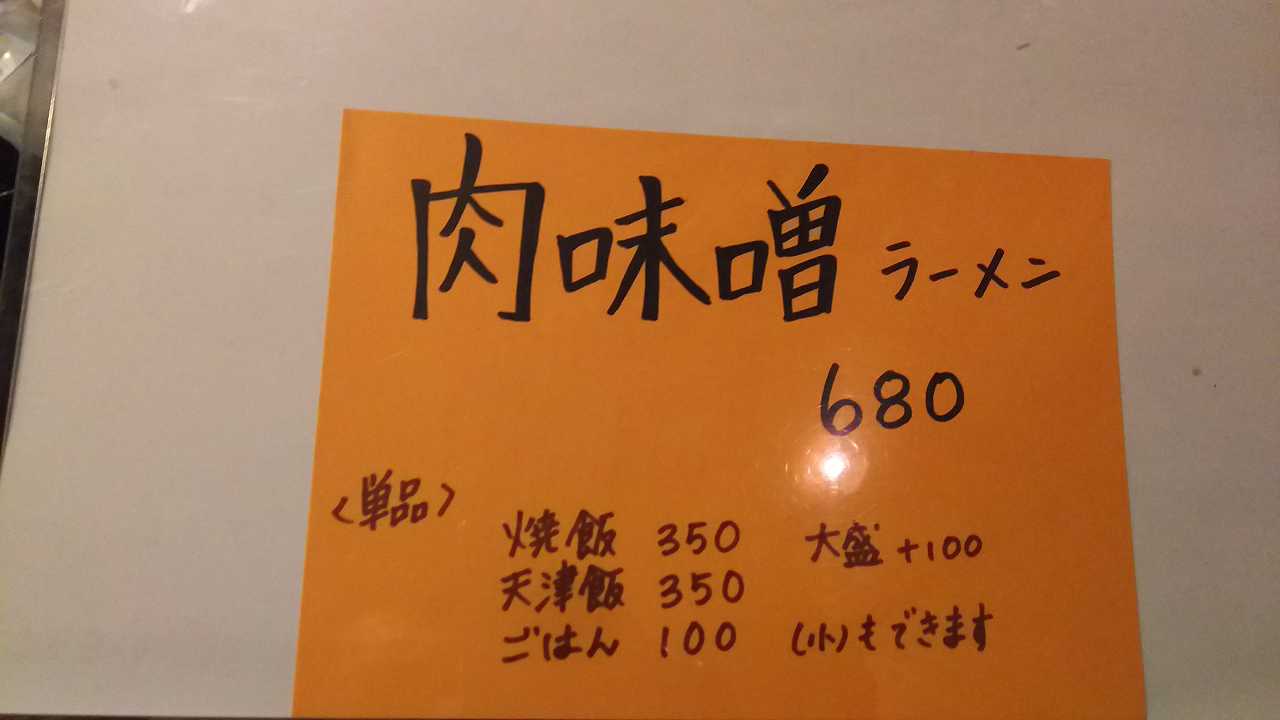 肉味噌ラーメン
680
<単品>
焼飯 350 大盛 +100
天津飯 350
ごはん 100 (小)もできます